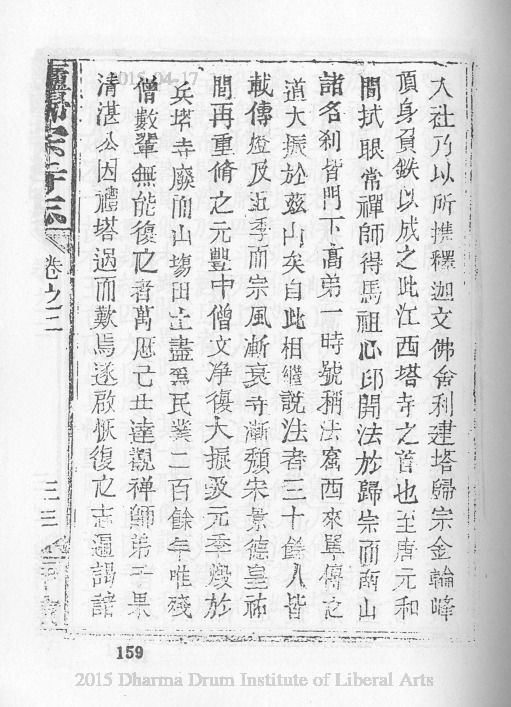 入社乃以所携釋迦文佛舍利建塔歸宗金輪峰
頂身負鉄以成之此江西塔寺之首也至唐元和
間拭眼常禪師得馬祖心印開法於歸宗而南山
諸名刹皆門下高弟一時號稱法窟西來單傳之
道大振於茲山矣自此相繼説法者三十餘人皆
載傳燈及近季而宗風漸衰寺漸頽宋景德皇祐
間再重脩之元豐中僧文净復大振及元季燬於
兵塔寺廢而山塲田土盡爲民業二百餘年唯殘
僧數輩無能復之者萬曆己丑達觀禅師弟子果
清湛公因禮塔過而歎焉遂啟恢復之志遍謁諸
廬山歸宗寺志
卷之二
159
2015-04-17
2015 Dharma Drum Institute of Liberal Arts